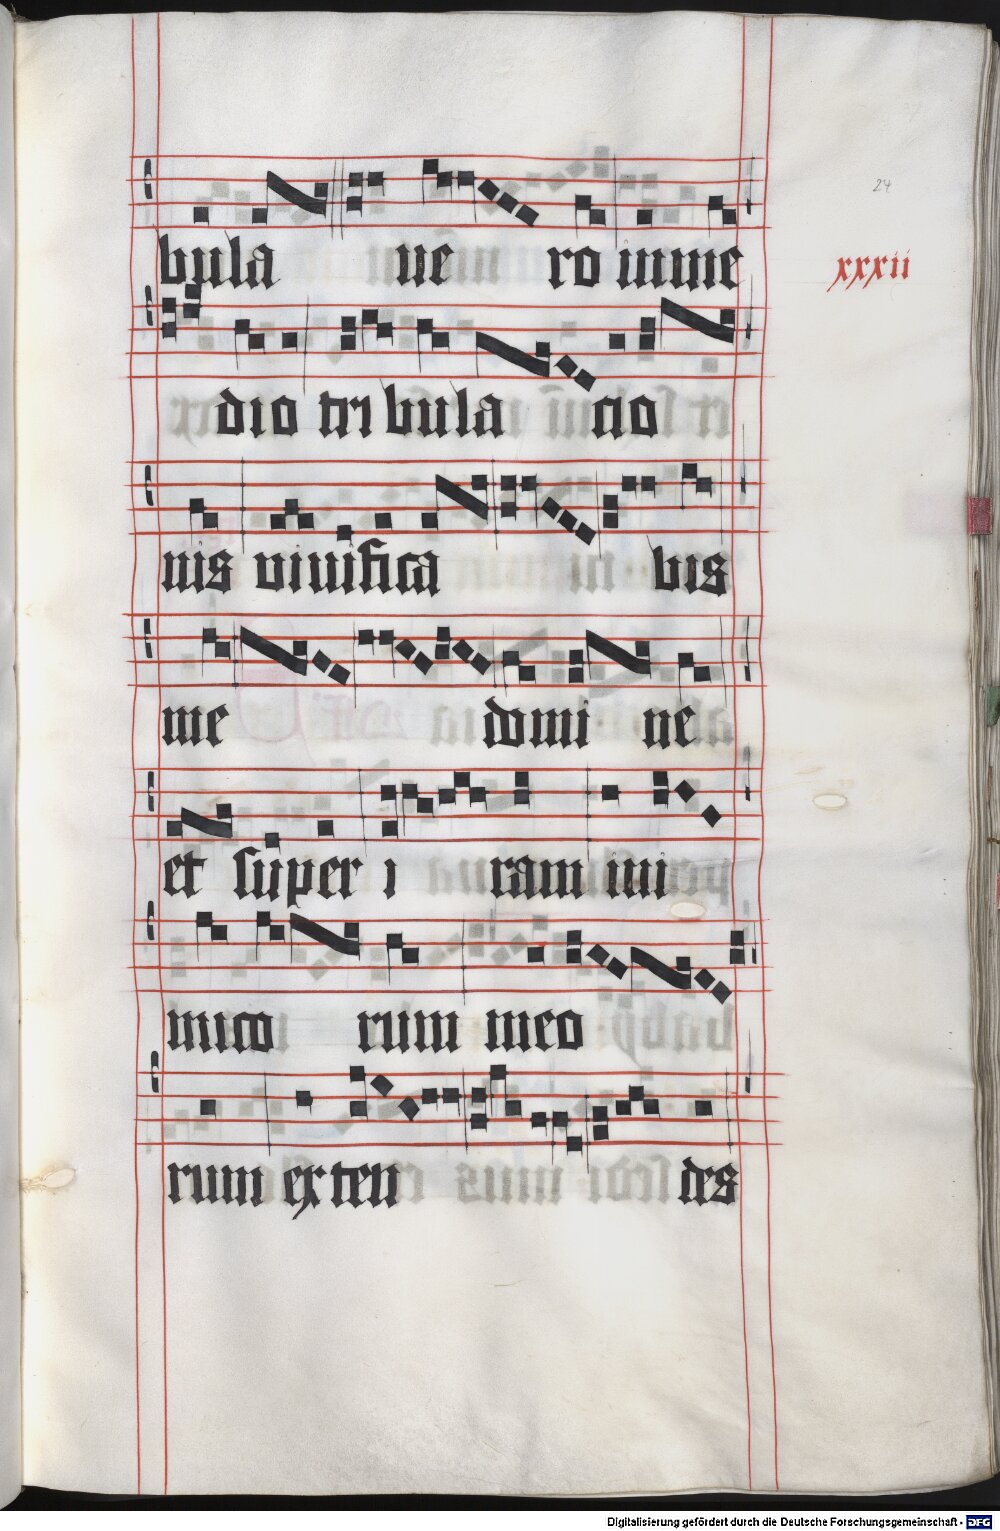 24
xxxii
bula ue ro in me
dio tri bula cio
nis viuifica bis
me domi ne
et super i ram ini
mico rum meo
rum exten des
Digitalisierung gefördert durch die Deutsche Forschungsgemeinschaft - DFG